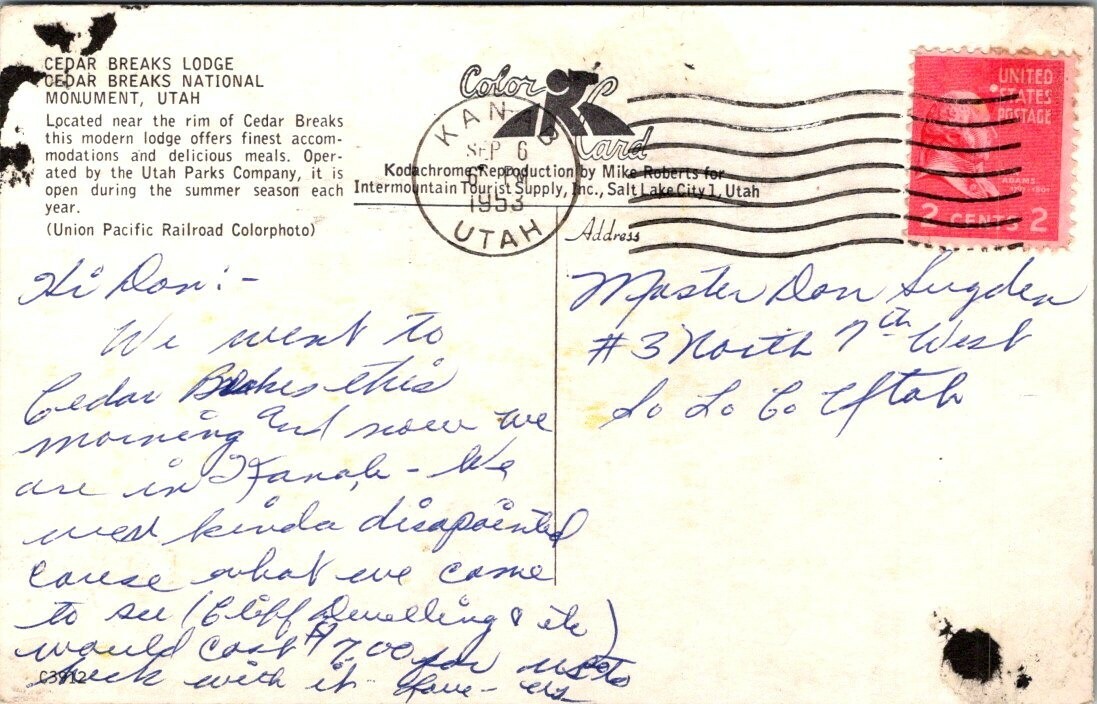 CEDAR BREAKS LODGE
CEDAR BREAKS NATIONAL
MONUMENT, UTAH
Located near the rim of Cedar Breaks
this modern lodge offers finest accom-
modations and delicious meals. Oper-
ated by the Utah Parks Company, it is
open during the summer season each
year.
(Union Pacific Railroad Colorphoto)
Color
Card
Kodachrome Reproduction by Mike Roberts for
Intermountain Tourist Supply, Inc., Salt Lake City 1, Utah
KANAB
SEP 6
6 PM
1953
UTAH
UNITED
STATES
POSTAGE
ADAMS
2 CENTS 2
Address
Hi Don:-
We went to
Cedar Brakes this
morning and now we
are in Kanab - We
were kinda disapointed
cause what we came
to see (Cliff Dwelling & etc)
would cost $7.00 for us to
with it. Love -
Master Don Sugden
#3 North 7th West
S. L. C. Utah
C3912